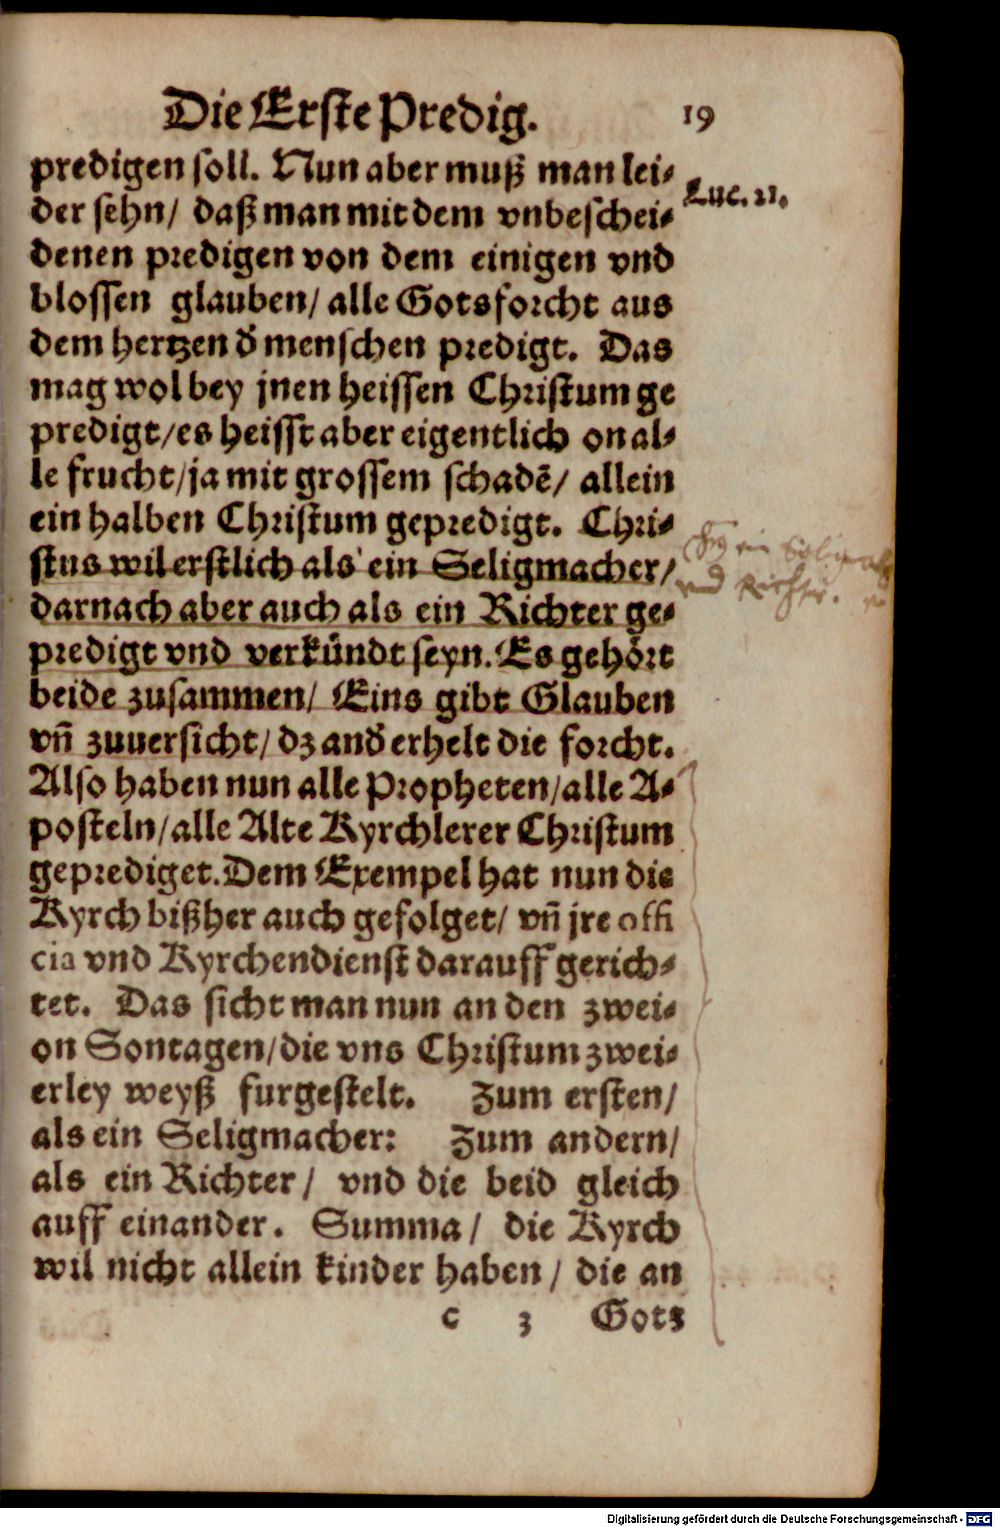 Die Erste Predig. 19
predigen soll. Nun aber muß man lei⸗
Luc. 21.
der sehn/ daß man mit dem vnbeschei⸗
denen predigen von dem einigen vnd
blossen glauben/ alle Gotsforcht aus
dem hertzen d̕ menschen predigt. Das
mag wol bey jnen heissen Christum ge
predigt/es heisst aber eigentlich on al⸗
le frucht/ja mit grossem schadē/ allein
ein halben Christum gepredigt. Chri⸗
stus wil erstlich als ein Seligmacher/
darnach aber auch als ein Richter ge⸗
vnd Richter.
predigt vnd verkündt seyn. Es gehört
beide zusammen/ Eins gibt Glauben
vñ zuuersicht/ dz and̕ erhelt die forcht.
Also haben nun alle Propheten/alle A⸗
posteln/alle Alte Kyrchlerer Christum
geprediget. Dem Exempel hat nun die
Kyrch bißher auch gefolget/ vñ jre offi
cia vnd Kyrchendienst darauff gerich⸗
tet. Das sicht man nun an den zwei⸗
on Sontagen/die vns Christum zwei⸗
erley weyß furgestelt. Zum ersten/
als ein Seligmacher: Zum andern/
als ein Richter/ vnd die beid gleich
auff einander. Summa/ die Kyrch
wil nicht allein kinder haben/ die an
c 3 Gots
Digitalisierung gefördert durch die Deutsche Forschungsgemeinschaft - DFG